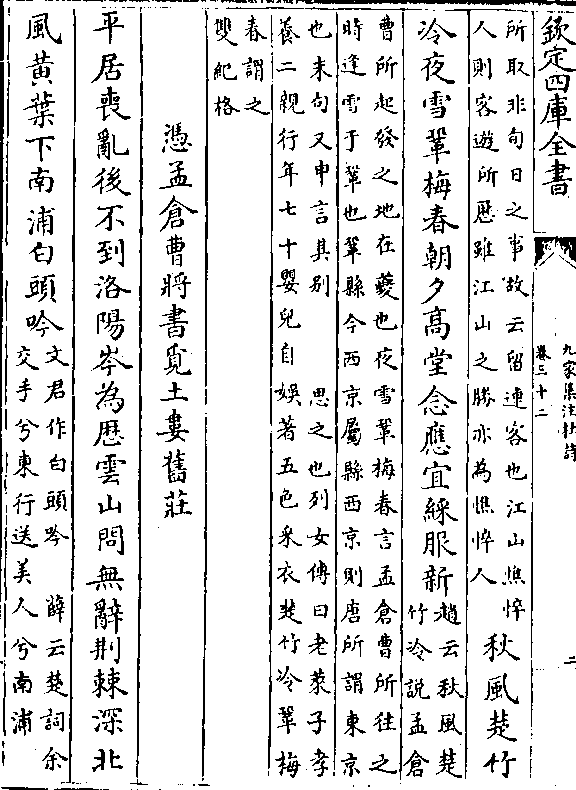 欽定四庫全書
九家集注杜詩
卷三十二
二
所取非旬日之事故云留連客也江山憔悴
人則客遊所厯雖江山之勝亦為憔悴人
秋風楚竹
冷夜雪鞏梅春朝夕高堂念應宜綵服新
趙云秋風楚
竹冷說孟倉
曹所起發之地在夔也夜雪鞏梅春言孟倉曹所往之
時逢雪于鞏也鞏縣今西京屬縣西京則唐所謂東京
也末句又申言其别 思之也列女傳曰老萊子孝
養二親行年七十嬰兒自娛著五色采衣楚竹冷鞏梅
春謂之
雙紀格
憑孟倉曹將書覓土婁舊莊
平居喪亂後不到洛陽岑為厯雲山問無辭荆棘深北
風黃葉下南浦白頭吟
文君作白頭吟 薛云楚詞余
交手兮東行送美人兮南浦